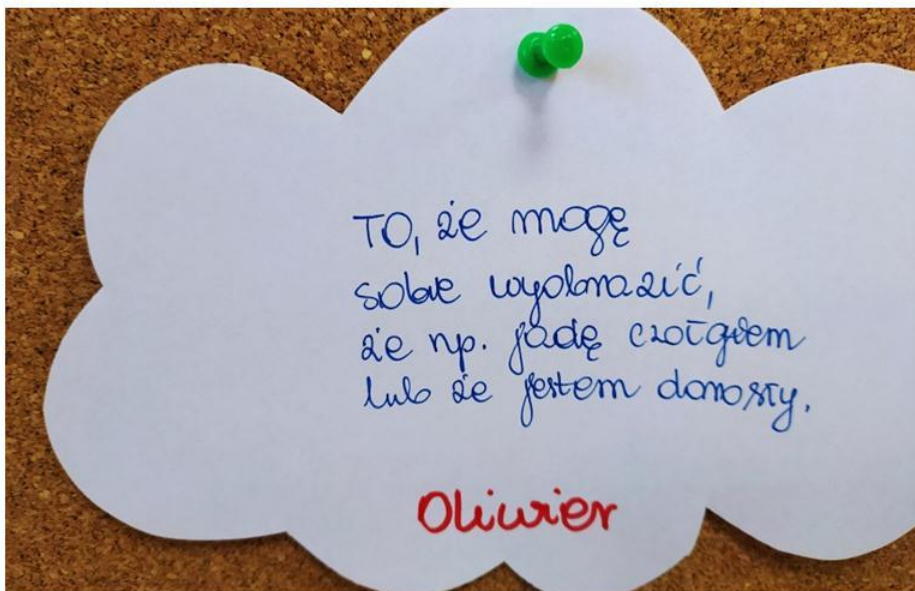 TO, że mogę
sobie wyobrazić,
że np. jadę czołgiem
lub że jestem dorosły.
Oliwier